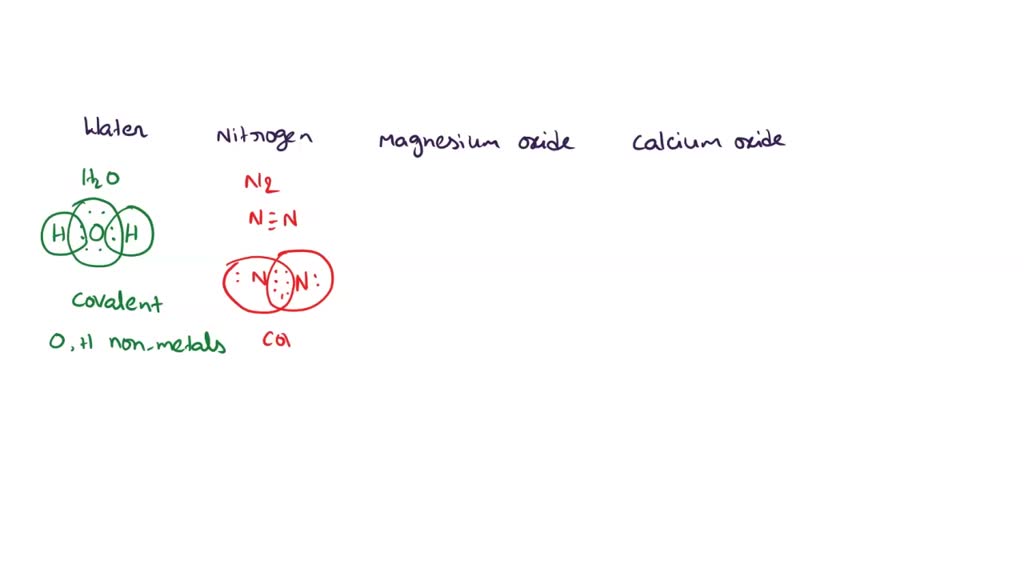 Water Nitrogen Magnesium oxide Calcium oxide
H2O
N2
N≡N
H:O:H
:N⋮⋮N:
Covalent
O, H non-metals
Cov